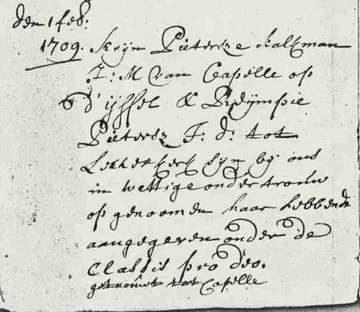 den 1 feb:
1709. Krijn Pietersze Kalkman
J: M van Capelle op
d'ijssel & Pleijntie
Pieters J: d: tot
Lekkerkerk sijn bij ons
in wettige ondertrouw
op genoomen haar hebbende
aangegeven onder de
Classis pro deo.
getrouwt tot Capelle